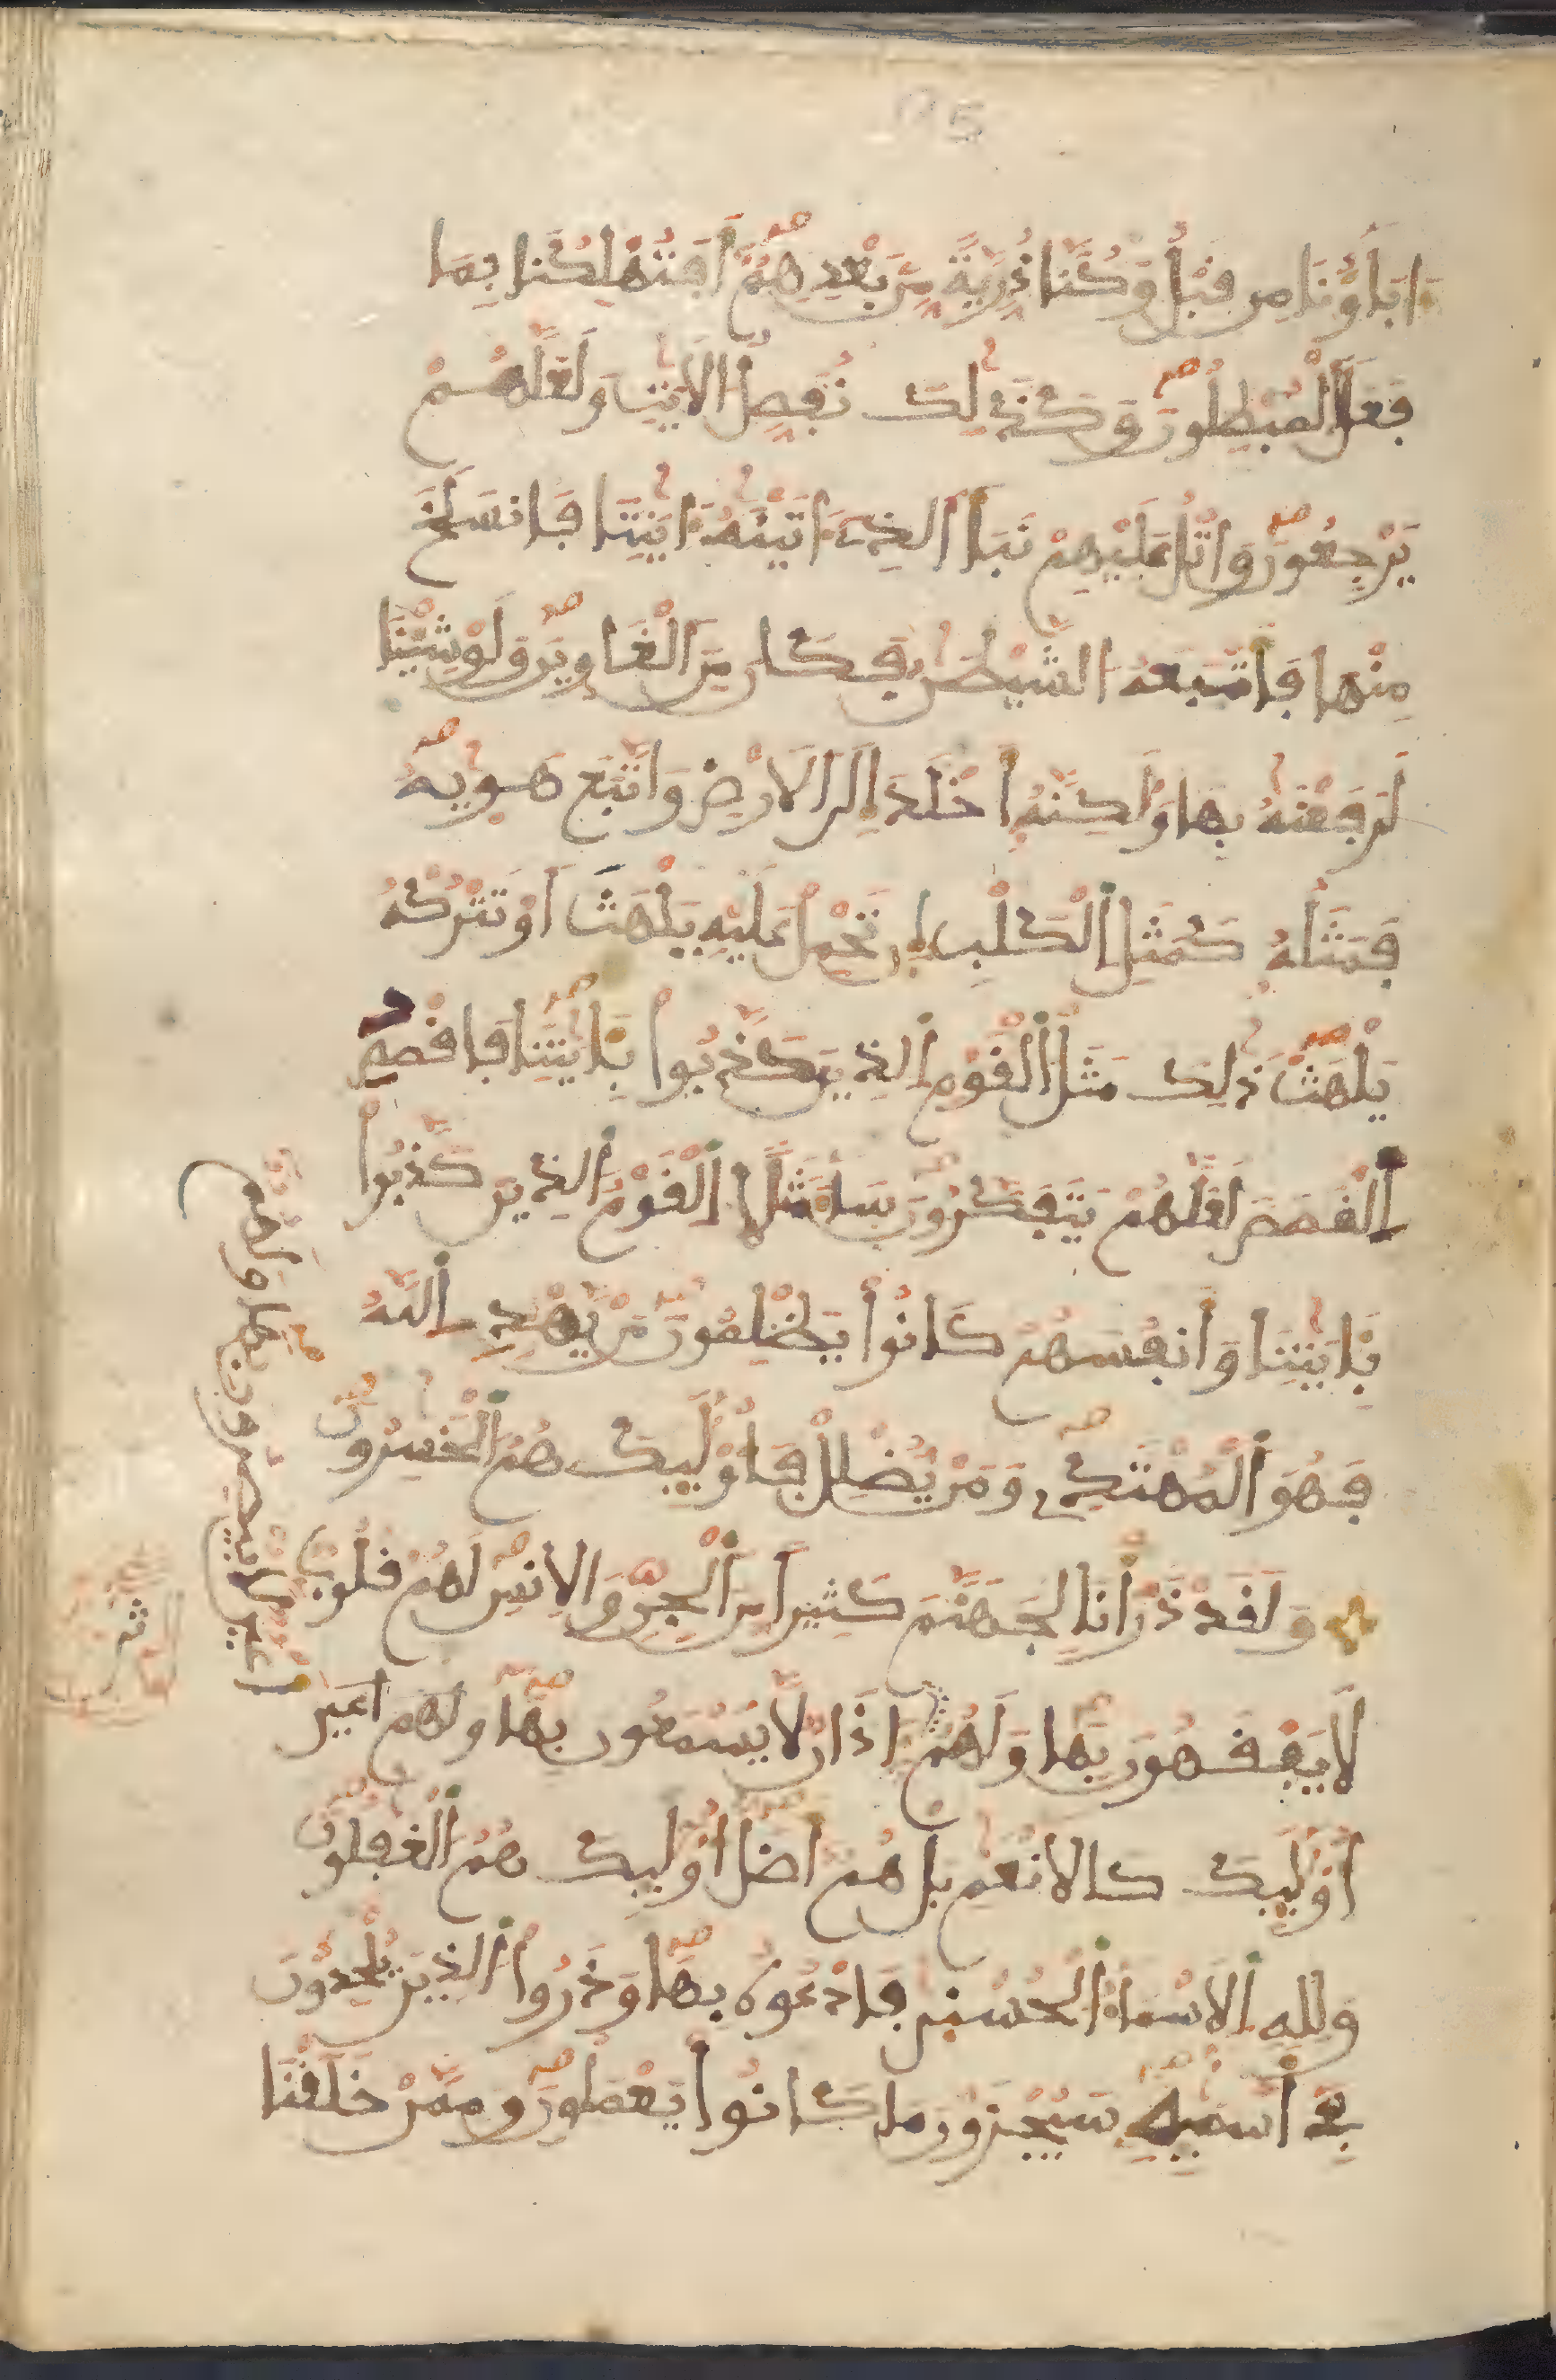 ءَابَآؤُنَا مِن قَبْلُ وَكُنَّا ذُرِّيَّةً مِّنۢ بَعْدِهِمُۥٓ أَفَتُهْلِكُنَا بِمَا
فَعَلَ ٱلْمُبْطِلُونَ وَكَذَٰلِكَ نُفَصِّلُ ٱلَايَٰتِ وَلَعَلَّهُمْ
يَرْجِعُونَ وَاتْلُ عَلَيْهِمْ نَبَأَ ٱلذِےٓ ءَاتَيْنَٰهُ ءَايَٰتِنَا فَانسَلَخَ
مِنْهَا فَأَتْبَعَهُ ٱلشَّيْطَٰنُ فَكَانَ مِنَ ٱلْغَاوِينَ وَلَوْ شِيْنَا
لَرَفَعْنَٰهُ بِهَا وَلَٰكِنَّهُۥٓ أَخْلَدَ إِلَى ٱلَارْضِ وَاتَّبَعَ هَوٜيٰهُ
فَمَثَلُهُۥ كَمَثَلِ ٱلْكَلْبِ إِن تَحْمِلْ عَلَيْهِ يَلْهَثَ اَوْ تَتْرُكْهُ
يَلْهَث ذَّٰلِكَ مَثَلُ ٱلْقَوْمِ ٱلذِينَ كَذَّبُوا۟ بِـَٔايَٰتِنَا فَاقْصُصِ
ٱلْقَصَصَ لَعَلَّهُمْ يَتَفَكَّرُونَ سَآءَ مَثَلًا ٱلْقَوْمُ ٱلذِينَ كَذَّبُوا۟
بِـَٔايَٰتِنَا وَأَنفُسَهُمْ كَانُوا۟ يَظْلِمُونَ مَنْ يَّهْدِ ٱللَّهُ
فَهُوَ ٱلْمُهْتَدِے وَمَنْ يُّضْلِلْ فَأُو۟لَٰٓئِكَ هُمُ ٱلْخَٰسِرُونَ
وَلَقَدْ ذَرَأْنَا لِجَهَنَّمَ كَثِيرًا مِّنَ ٱلْجِنِّ وَالِانسِ لَهُمْ قُلُوبٌ
لَّا يَفْقَهُونَ بِهَا وَلَهُمُۥٓ ءَاذَانٌ لَّا يَسْمَعُونَ بِهَا وَلَهُمُۥٓ أَعْيُنٌ
أُو۟لَٰٓئِكَ كَالَانْعَٰمِ بَلْ هُمُۥٓ أَضَلُّ أُو۟لَٰٓئِكَ هُمُ ٱلْغَٰفِلُونَ
وَلِلهِ ٱلَاسْمَآءُ ٱلْحُسْنَىٰ فَادْعُوهُ بِهَا وَذَرُوا۟ ٱلذِينَ يُلْحِدُونَ
فِےٓ أَسْمَٰٓئِهِۦ سَيُجْزَوْنَ مَا كَانُوا۟ يَعْمَلُونَ وَمِمَّنْ خَلَقْنَا